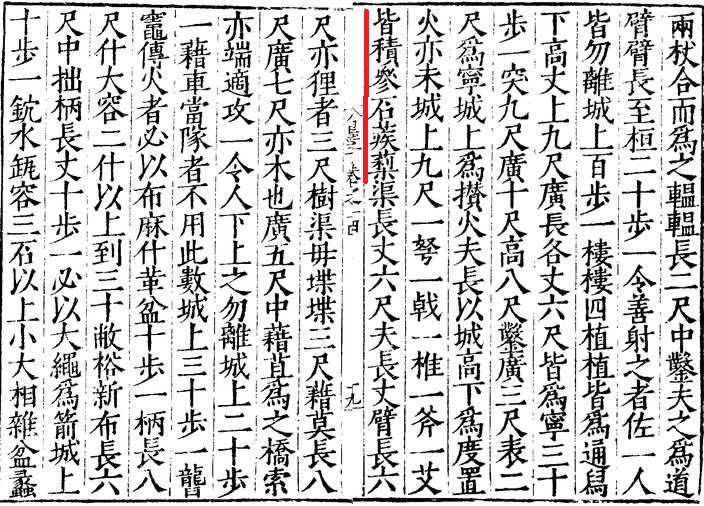 兩杖合而爲之轀轀長二尺中鑿夫之爲道
臂臂長至桓二十步一令善射之者佐一人
皆勿離城上百步一樓樓四植植皆爲通舄
下高丈上九尺廣長各丈六尺皆爲寧三十
步一突九尺廣十尺高八尺鑿廣三尺表二
尺爲寧城上爲攅火夫長以城高下爲度置
火亦末城上九尺一弩一戟一椎一斧一艾
皆積參石蒺藜渠長丈六尺夫長丈臂長六
卷之十四
十九
尺亦狸者三尺樹渠毋堞堞三尺藉莫長八
尺廣七尺亦木也廣五尺中藉苴爲之橋索
亦端適攻一令人下上之勿離城上二十步
一藉車當隊者不用此數城上三十步一聾
竈傳火者必以布麻什革盆十步一柄長八
尺什大容二什以上到三十敝裕新布長六
尺中拙柄長丈十步一必以大繩爲箭城上
十步一鈂水缻容三石以上小大相雜盆蠡